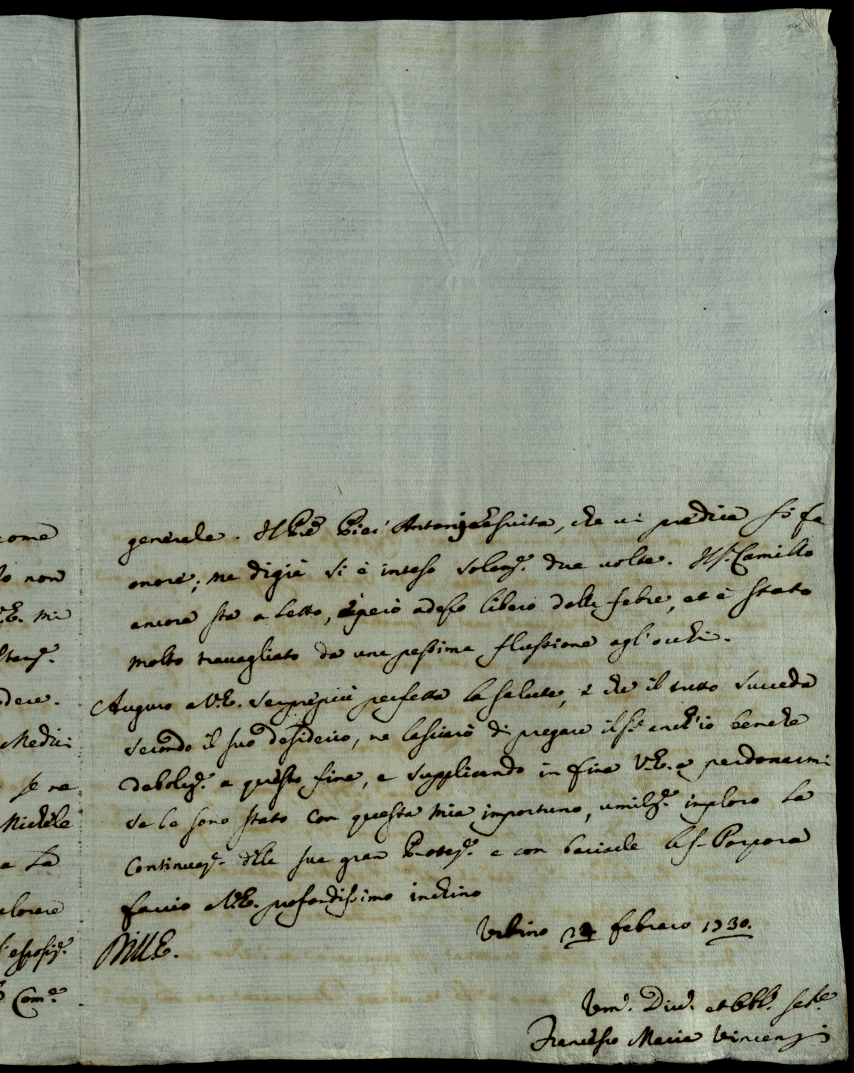 come
non
V.E. mi
dere.
Medici
se ne
Michele
e La
Com.e
generale. Il P.re Pici Antonio Gesuita, che ui predica si fa
onore; ma digià si è inteso solam.e due uolte. Il S.r Camillo
ancora sta a letto, è però adesso libero dalla febre, et è stato
molto trauagliato da una pessima flussione agl'occhi.
Auguro a V.E. sempre più perfetta la salute, e che il tutto succeda
secondo il suo desiderio, ne lasciarò di pregare il S.re anch'io benche
debolm.e a questo fine, e supplicando in fine V.E. a perdonarmi
se le sono stato con questa mia importuno, umilm.e imploro La
Continuaz.e della sua gran Protez.e e con baciarle la S. Porpora
faccio a V.E. profondissimo inchino
Urbino 24 Febraro 1730.
Um.o Diu.o et Obl.o Ser.re
Francesco Maria Vincenzi